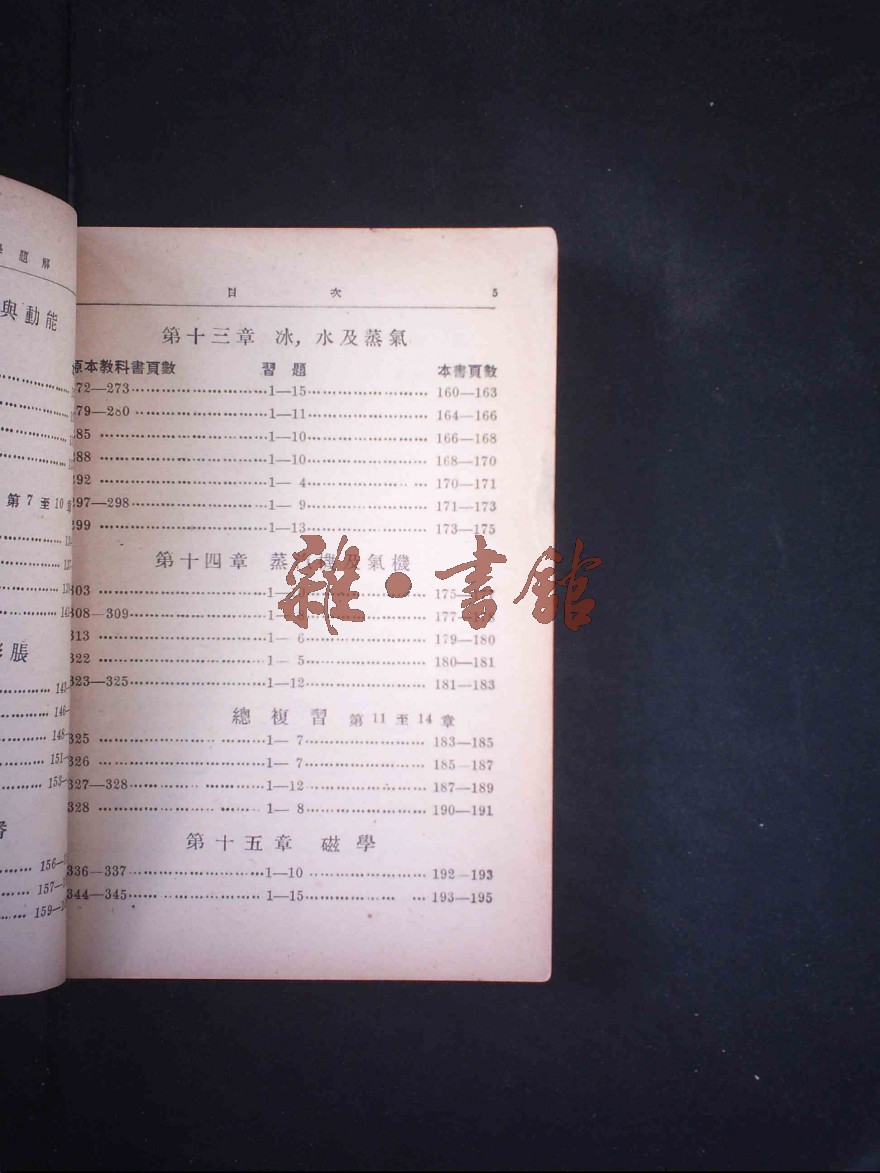 題解
與動能
第7至10章
脹
143
146
148
151
153
156
157
159
目次 5
第十三章 冰，水及蒸氣
原本教科書頁數 習題 本書頁數
272—273 1—15 160—163
279—280 1—11 164—166
285 1—10 166—168
288 1—10 168—170
292 1—4 170—171
297—298 1—9 171—173
299 1—13 173—175
第十四章 蒸汽機及氣機
303 175—
308—309 177—
313 1—6 179—180
322 1—5 180—181
323—325 1—12 181—183
總複習 第11至14章
325 1—7 183—185
326 1—7 185—187
327—328 1—12 187—189
328 1—8 190—191
第十五章 磁學
336—337 1—10 192—193
344—345 1—15 193—195
雜·書館